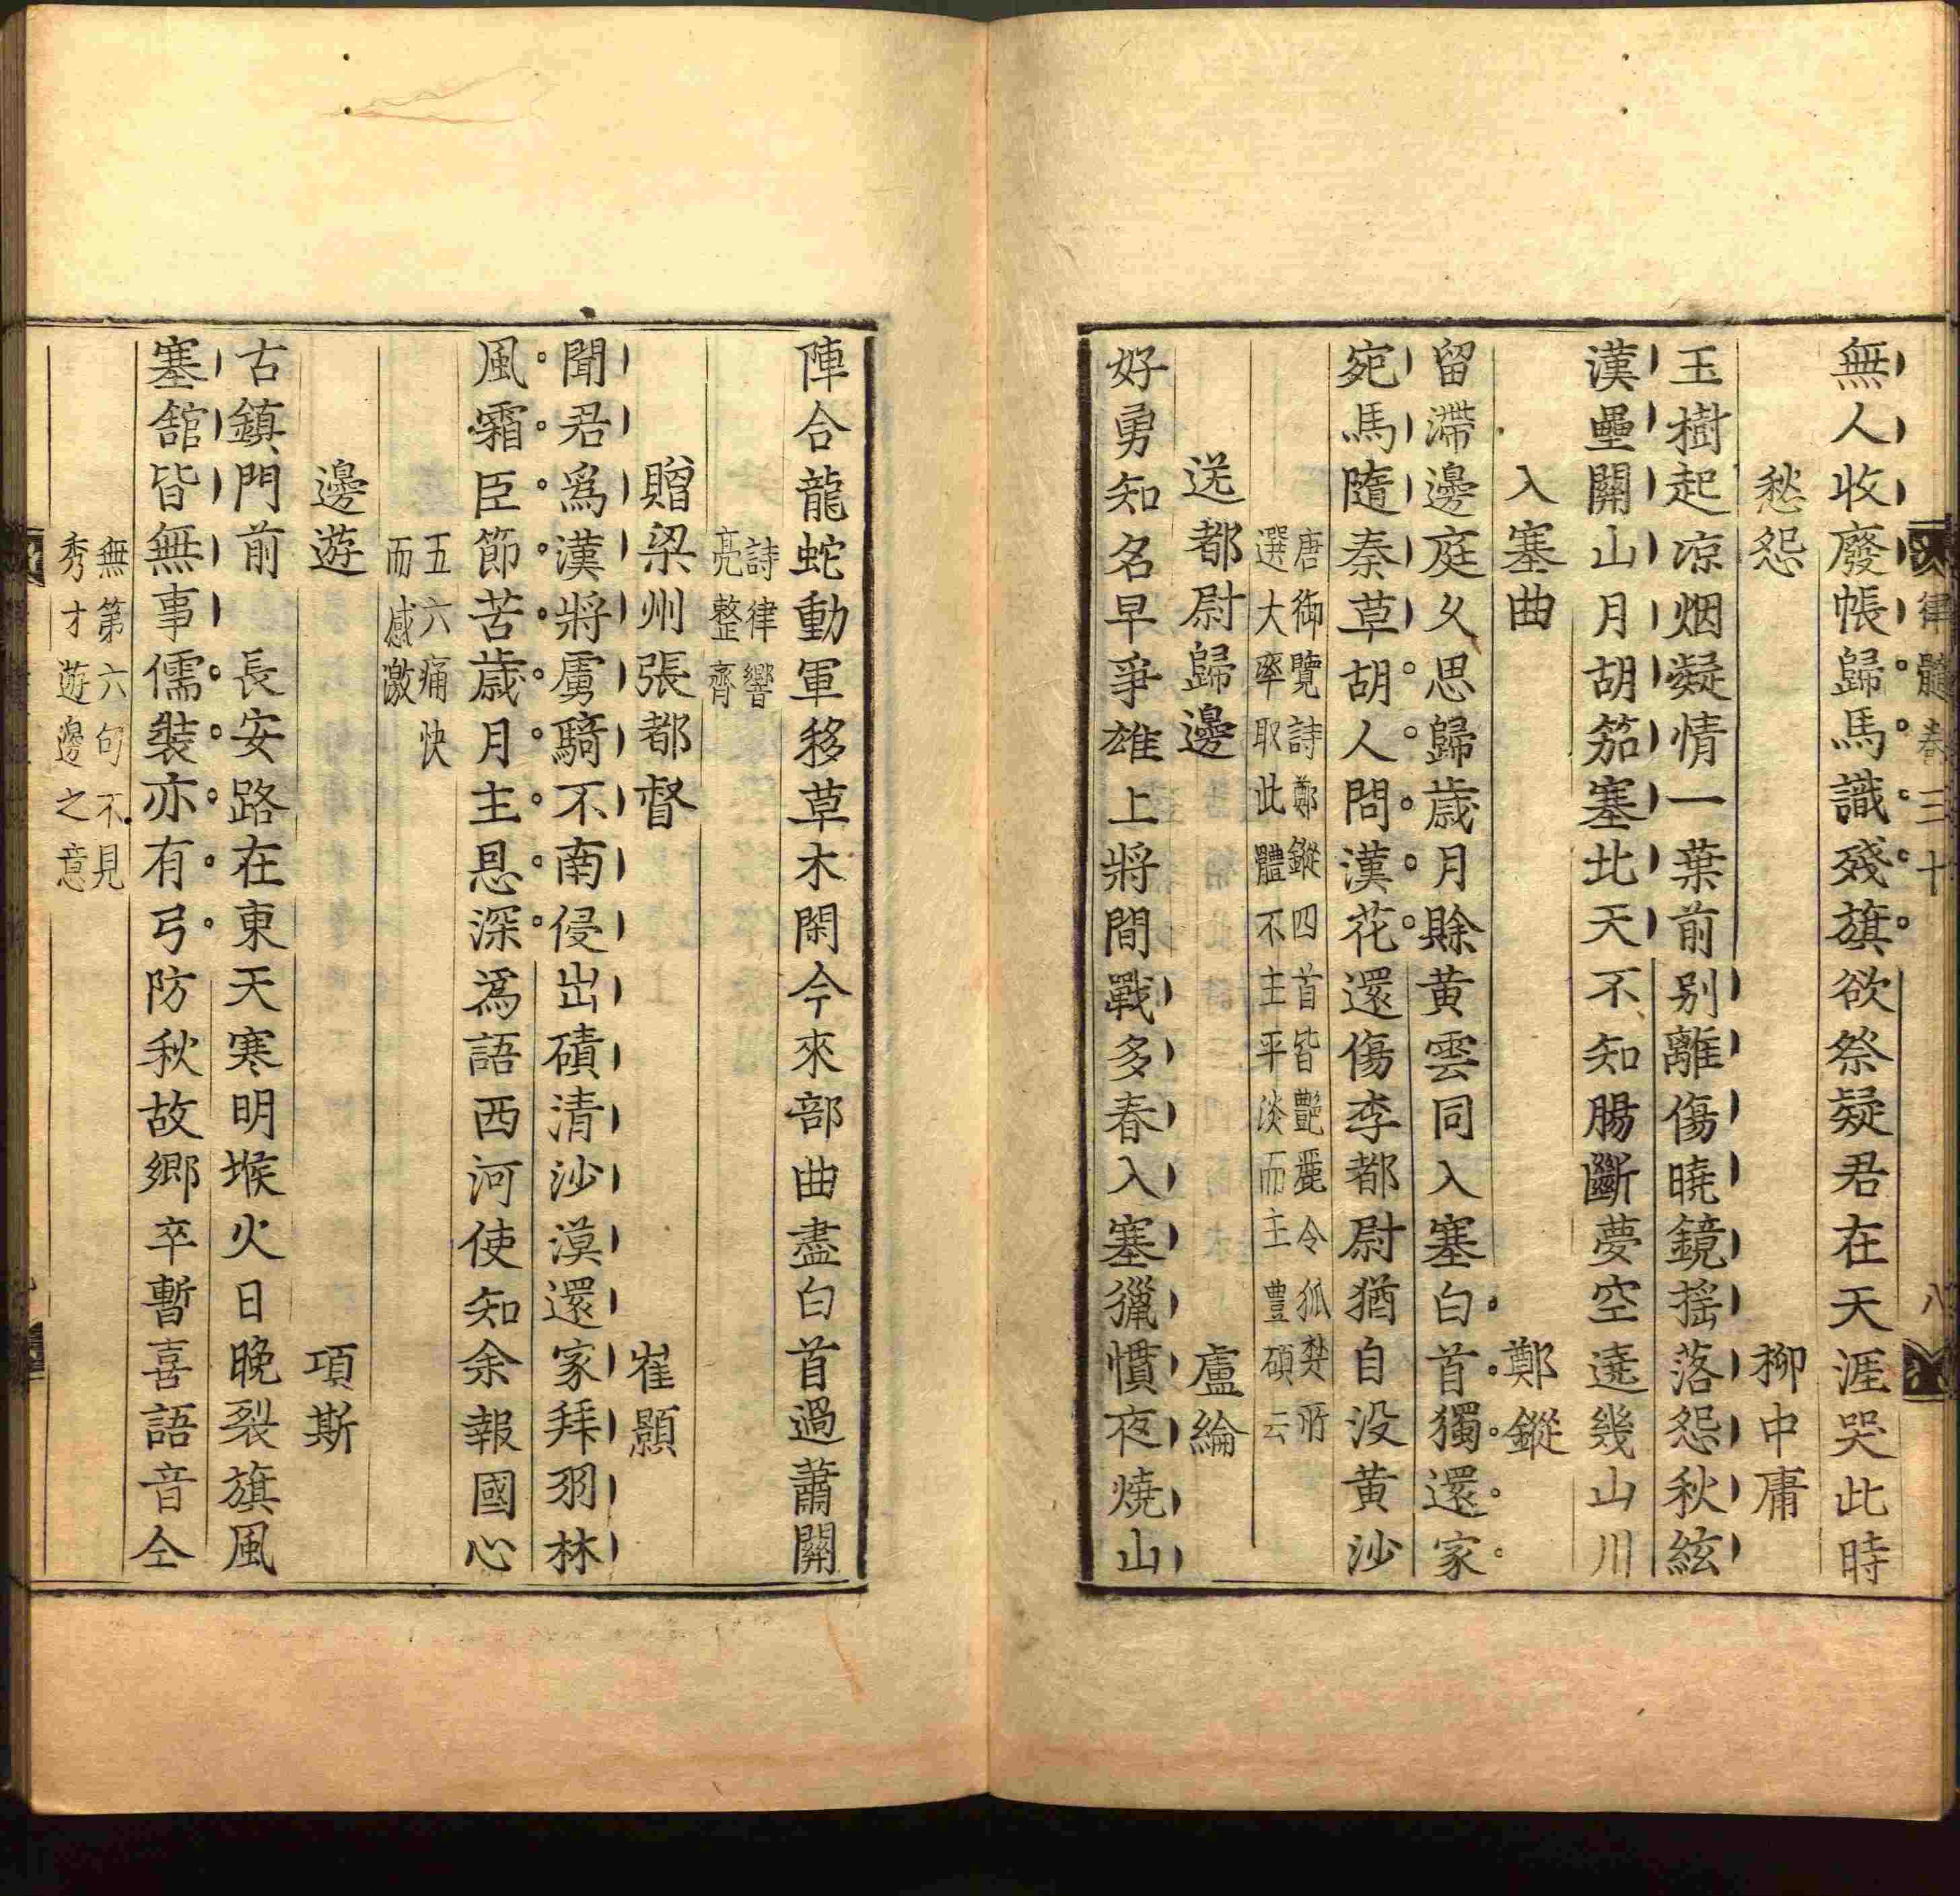 律髓卷三十 八
無人收廢帳歸馬識殘旗欲祭疑君在天涯哭此時
愁怨 柳中庸
玉樹起凉烟凝情一葉前别離傷曉鏡揺落怨秋絃
漢壘關山月胡笳塞北天不知腸斷夢空遶幾山川
入塞曲 鄭鏦
留滯邊庭久思歸歲月賖黄雲同入塞白首獨還家
宛馬隨秦草胡人問漢花還傷李都尉猶自没黄沙
唐御覽詩鄭鏦四首皆艷麗令狐楚所
選大率取此體不主平淡而主豊碩云
送都尉歸邊 盧綸
好勇知名早爭雄上將間戰多春入塞獵慣夜燒山
陣合龍蛇動軍移草木閑今來部曲盡白首過蕭關
詩律響
亮整齊
贈梁州張都督 崔顥
聞君爲漢將虜騎不南侵出磧清沙漠還家拜羽林
風霜臣節苦歲月主恩深為語西河使知余報國心
五六痛快
而感激
邊遊 項斯
古鎮門前 長安路在東天寒明堠火日晚裂旗風
塞舘皆無事儒裝亦有弓防秋故鄉卒暫喜語音仝
無第六句不見
秀才遊邊之意